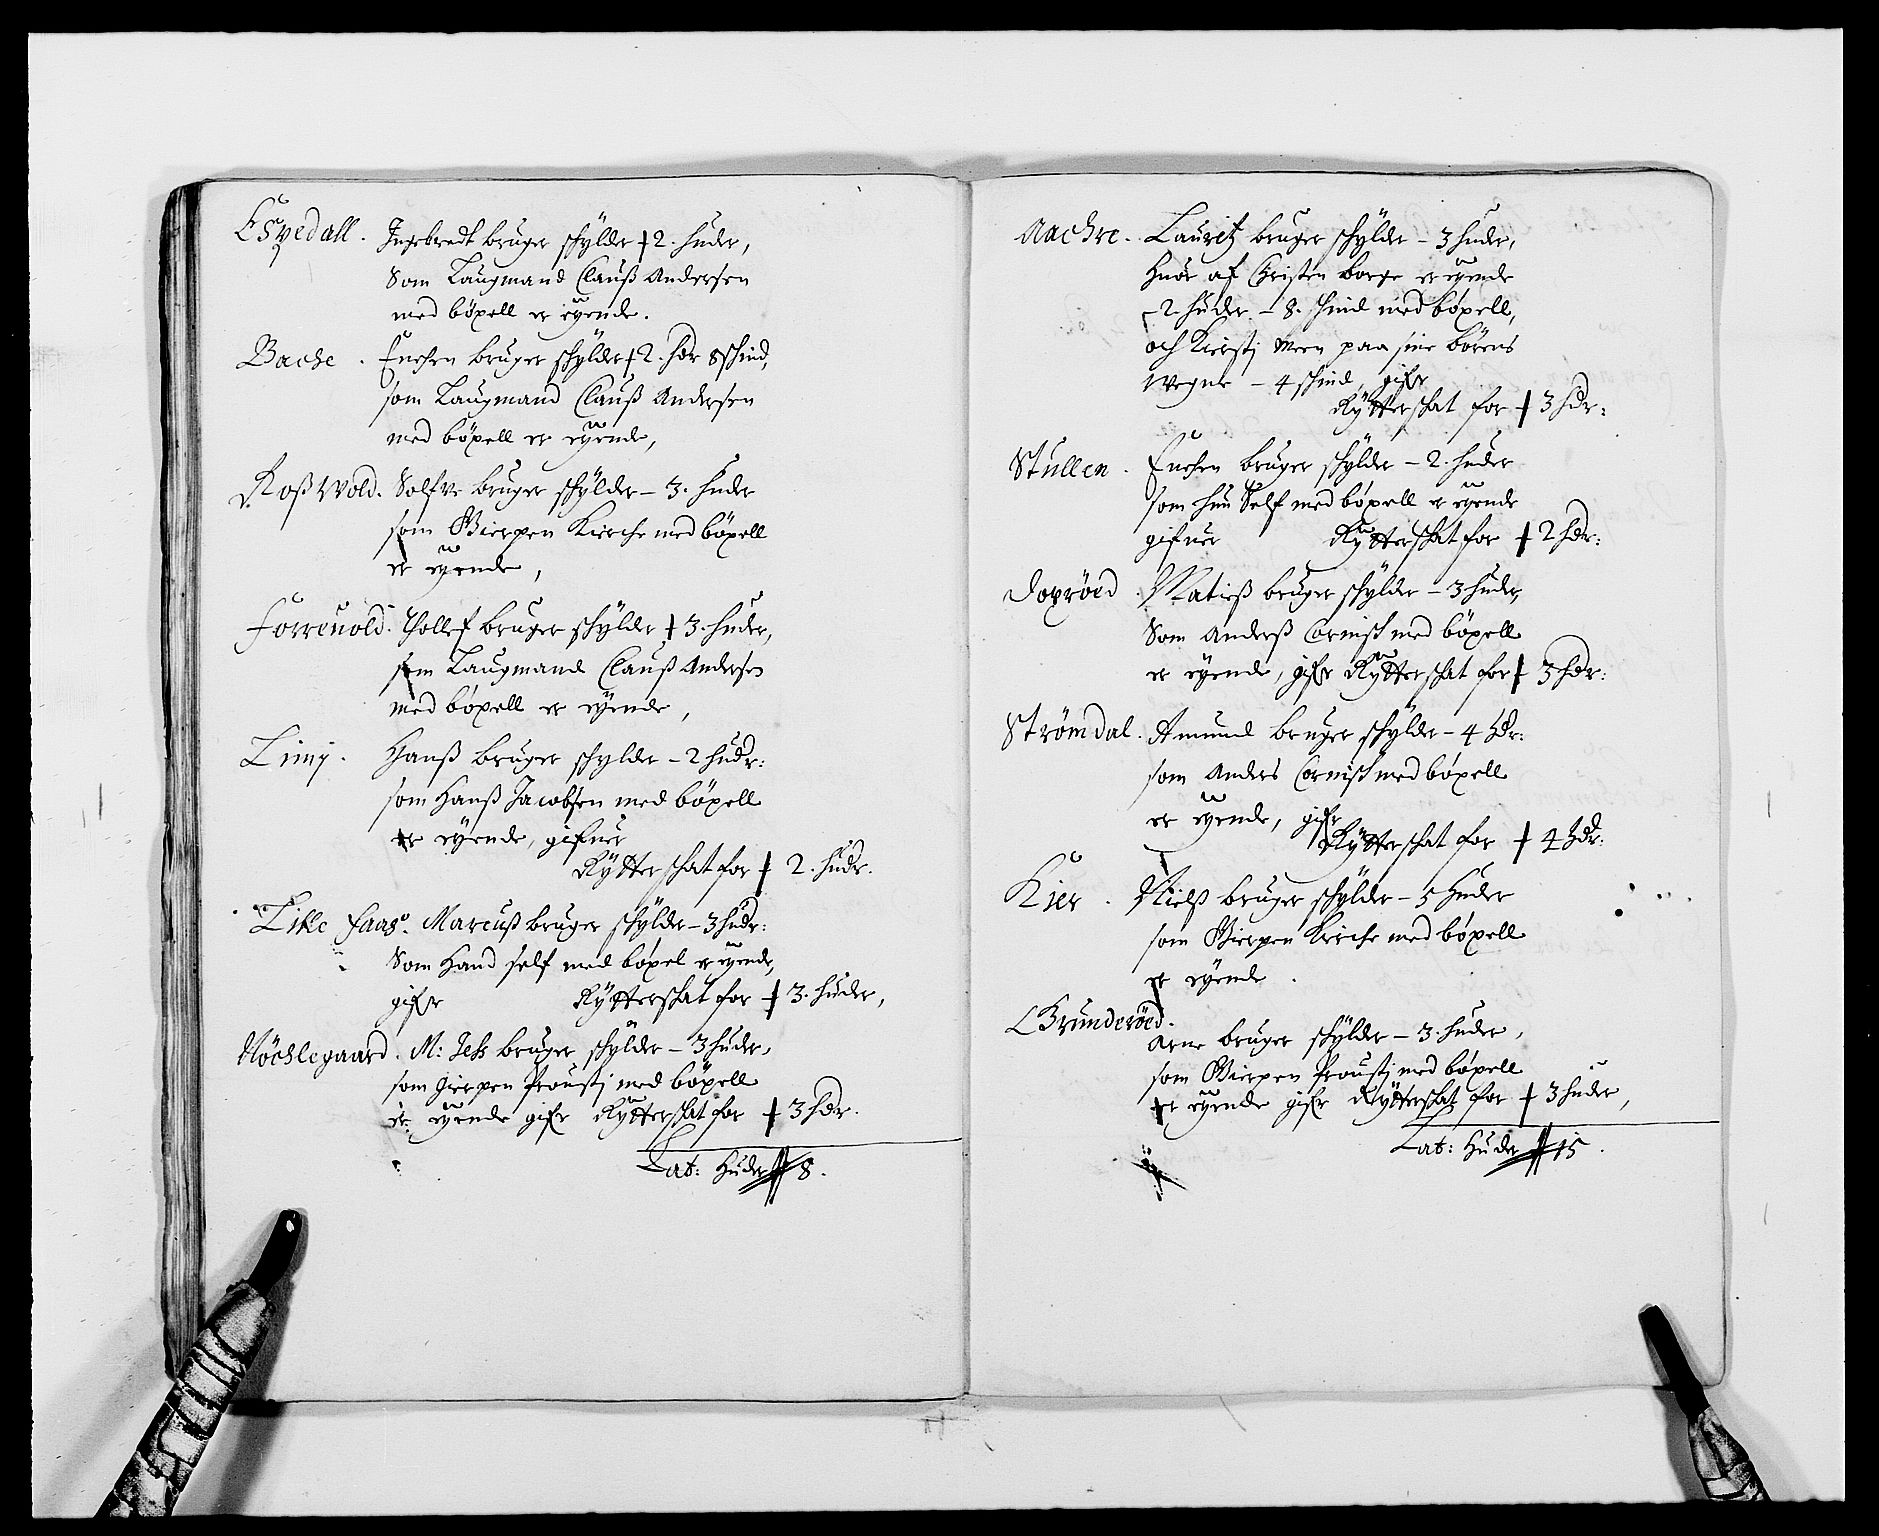 Ingebredt bruger schylder ƚ 2. huder,
Som Laugmand Clauß Andersen
med böxell er eyende.
Bache. Enchen bruger schylder ƚ 2. hdr 8 schind,
som Laugmand Clauß Andersen
med böxell er eyende,
Roßwold. Solfve bruger schylder - 3. huder
som Gierpen Kirche med böxell
er eyende,
Forreuold. Thollef bruger schylder ƚ 3. huder,
som Laugmand Clauß Andersen
med böxell er eyende,
Limj. Hanß bruger schylder - 2 hudr:
som Hanß Jacobsen med böxell
er eyende, gifuer
Rytterschat for ƚ 2. hudr.
Lille Faaß. Marcuß bruger schylder - 3 hudr:
Som Hand self med böxel er eyende,
gifr Rytterschat for ƚ 3. huder,
Nöchlegaard. M: Jeß bruger schylder - 3 huder,
som Gierpen Proustj med böxell
er eyende gifr Rytterschat for ƚ 3 hdr.
Lat: Huder 8.
Aachre. Lauritz bruger schylder - 3 huder,
Huor af Christen Borge er eyende
2 huder - 8. schind med böxell,
och Kierstj Meen paa sine börens
wegne - 4 schind, gifr
Rytterschat for ƚ 3 hdr:
Stullen. Enchen bruger schylder - 2. huder
som hun Self med böxell er eyende
gifuer Rytterschat for ƚ 2 hdr:
Doxröed. Matieß bruger schylder - 3 huder,
Som Anderß Cornisch med böxell
er eyende, gifr Rytterschat for ƚ 3 hdr:
Strömdal. Amund bruger schylder - 4 hdr:
som Anders Cornisch med böxell
er eyende, gifr
Rytterschat for ƚ 4 hdr:
Kier. Nielß bruger schylder - 5 Huder
som Gierpen Kirche med böxell
er eyende.
Grunderöed.
Arne bruger schylder - 3. huder,
som Gierpen Proustj med böxell
er eyende gifr Rytterschat for ƚ 3 huder,
Lat: Huder 15.